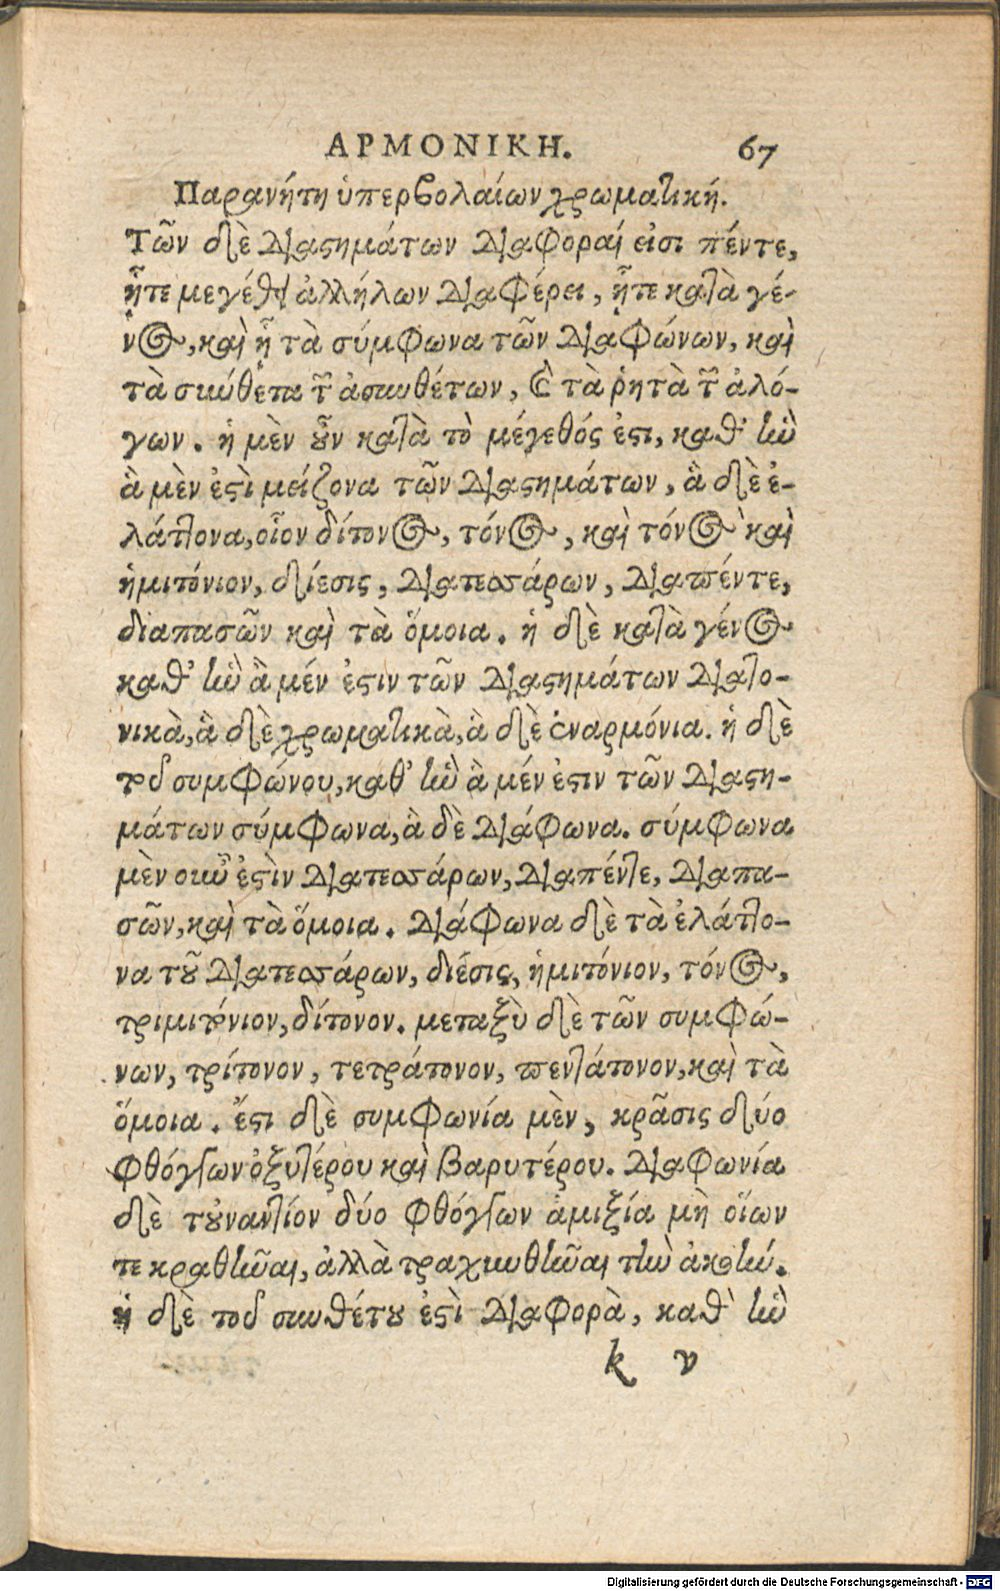 ΑΡΜΟΝΙΚΗ. 67
Παρανήτη ὑπερβολαίων χρωματική.
Τῶν δὲ διαστημάτων διαφοραί εἰσι πέντε,
ᾗτε μεγέθει ἀλλήλων διαφέρει, ᾗτε κατὰ γέ-
νος, καὶ ᾗ τὰ σύμφωνα τῶν διαφώνων, καὶ
τὰ σύνθετα τῶν ἀσυνθέτων, καὶ τὰ ῥητὰ τῶν ἀλό-
γων. ἡ μὲν οὖν κατὰ τὸ μέγεθός ἐστι, καθ' ἣν
ἃ μὲν ἐστὶ μείζονα τῶν διαστημάτων, ἃ δὲ ἐ-
λάττονα, οἷον δίτονος, τόνος, καὶ τόνος καὶ
ἡμιτόνιον, δίεσις, διατεσσάρων, διαπέντε,
διαπασῶν καὶ τὰ ὅμοια. ἡ δὲ κατὰ γένος
καθ' ἣν ἃ μέν ἐστιν τῶν διαστημάτων διατο-
νικὰ, ἃ δὲ χρωματικὰ, ἃ δὲ ἐναρμόνια. ἡ δὲ
τοῦ συμφώνου, καθ' ἣν ἃ μέν ἐστιν τῶν διαστη-
μάτων σύμφωνα, ἃ δὲ διάφωνα. σύμφωνα
μὲν οὖν ἐστὶν διατεσσάρων, διαπέντε, διαπα-
σῶν, καὶ τὰ ὅμοια. διάφωνα δὲ τὰ ἐλάττο-
να τοῦ διατεσσάρων, διέσις, ἡμιτόνιον, τόνος,
τριμιτόνιον, δίτονον. μεταξὺ δὲ τῶν συμφώ-
νων, τρίτονον, τετράτονον, πεντάτονον, καὶ τὰ
ὅμοια. ἔστι δὲ συμφωνία μὲν, κρᾶσις δύο
φθόγγων ὀξυτέρου καὶ βαρυτέρου. διαφωνία
δὲ τοὐναντίον δύο φθόγγων ἀμιξία μὴ οἵων
τε κραθῆναι, ἀλλὰ τραχυνθῆναι τὴν ἀκοήν.
ἡ δὲ τοῦ συνθέτου ἐστὶ διαφορὰ, καθ' ἣν
k v
Digitalisierung gefördert durch die Deutsche Forschungsgemeinschaft - DFG